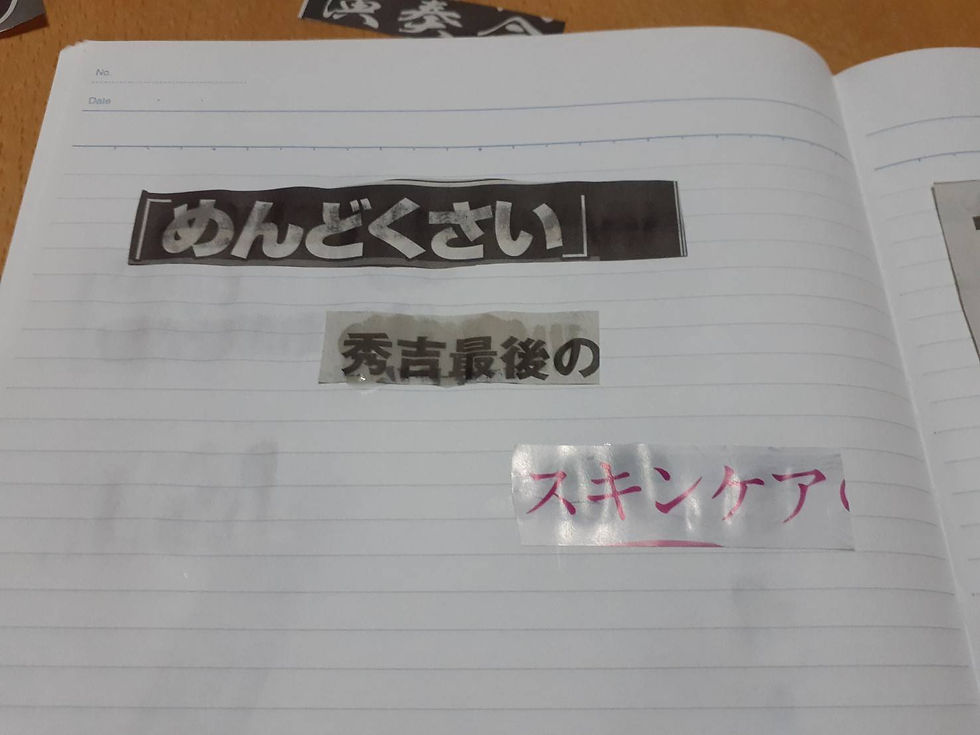 演奏会
No.
Date
「めんどくさい」
秀吉最後の
スキンケア